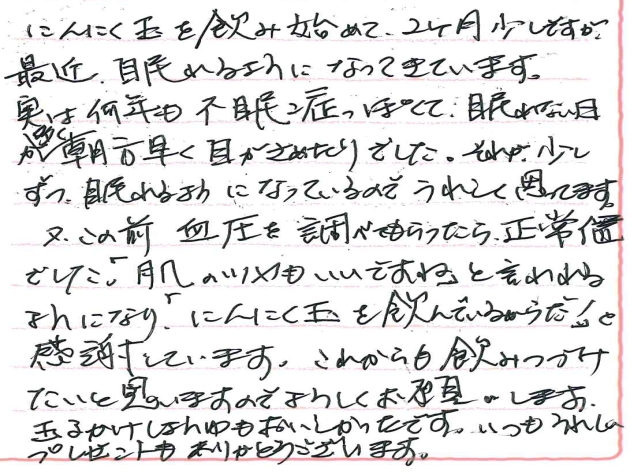 にんにく玉を飲み始めて、2ヶ月少しですが、
最近、眠れるようになってきています。
実は何年も不眠症っぽくて、眠れない日
が多く朝方早く目がさめたりでした。それが、少し
ずつ、眠れるようになっているのでうれしく思ってます
又、この前 血圧を調べてもらったら、正常値
でした。「肌のツヤもいいですね」と言われる
ようになり、「にんにく玉を飲んでいるからだ!」と
感謝しています。これからも飲みつづけ
たいと思いますのでよろしくお願いします。
玉子かけしょうゆもおいしかったです。いつもうれしい
プレゼントもありがとうございます。